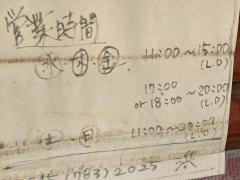 営業時間
水・木・金 11:00～15:00
(L.O)
17:00 ～20:00
or 18:00 (L.O)
土 日 11:00～20:00
(L.O)
(783) 2025